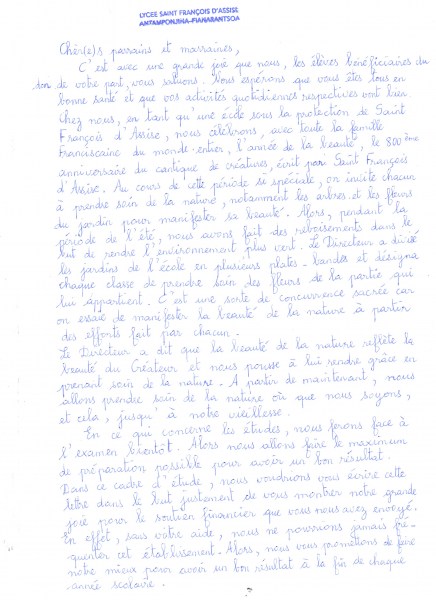 LYCEE SAINT FRANÇOIS D'ASSISE
ANTAMPONJINA-FIANARANTSOA
Chèr(e)s parrains et marraines,
C'est avec une grande joie que nous, les élèves bénéficiaires du
don de votre part, vous saluons. Nous espérons que vous êtes tous en
bonne santé et que vos activités quotidiennes respectives vont bien.
Chez nous, en tant qu'une école sous la protection de Saint
François d'Assise, nous célébrons, avec toute la famille
Franciscaine du monde entier, l'année de la beauté, le 800ème
anniversaire du cantique de créatures, écrit par Saint François
d'Assise. Au cours de cette période si spéciale, on invite chacun
à prendre soin de la nature, notamment les arbres et les fleurs
du jardin pour manifester sa beauté. Alors, pendant la
période de l'été, nous avons fait des reboisements dans le
but de rendre l'environnement plus vert. Le Directeur a divisé
les jardins de l'école en plusieurs plates-bandes et désigna
chaque classe de prendre soin des fleurs de la partie qui
lui appartient. C'est une sorte de concurrence sacrée car
on essaie de manifester la beauté de la nature à partir
des efforts fait par chacun.
Le Directeur a dit que la beauté de la nature reflète la
beauté du Créateur et nous pousse à lui rendre grâce en
prenant soin de la nature. A partir de maintenant, nous
allons prendre soin de la nature où que nous soyons,
et cela, jusqu'à notre vieillesse.
En ce qui concerne les études, nous ferons face à
l'examen bientôt. Alors nous allons faire le maximum
de préparation possible pour avoir un bon résultat.
Dans ce cadre d'étude, nous voudrions vous écrire cette
lettre dans le but justement de vous montrer notre grande
joie pour le soutien financier que vous nous avez envoyé.
En effet, sans votre aide, nous ne pourrions jamais fré-
quenter cet établissement. Alors, nous vous promettons de faire
notre mieux pour avoir un bon résultat à la fin de chaque
année scolaire.